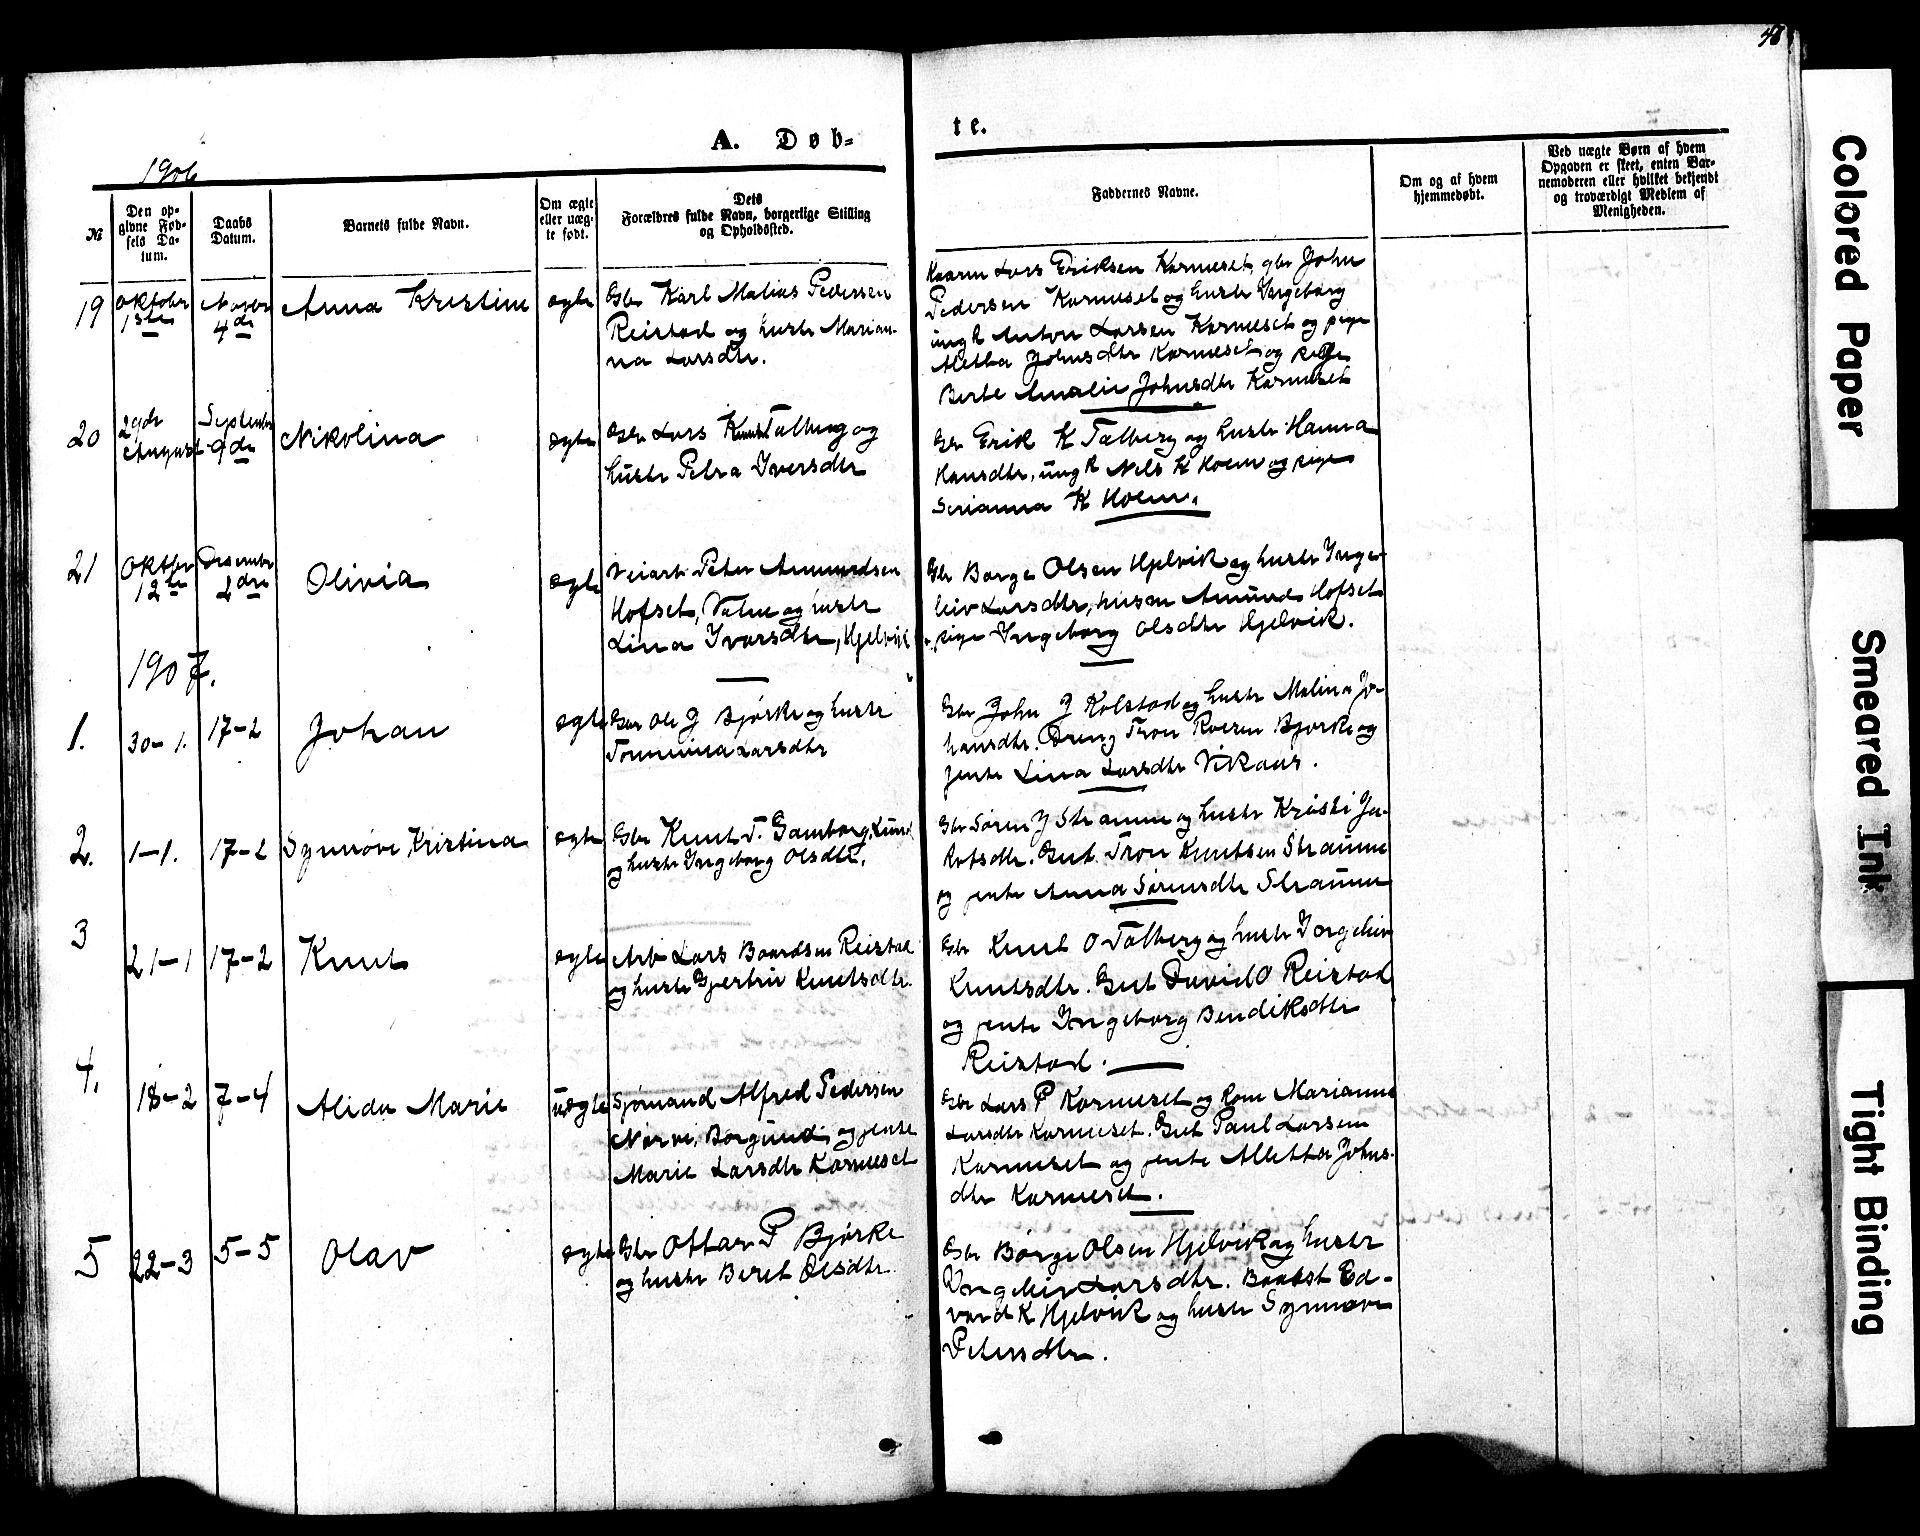 48
A. Døb-
te.
1906
№
Den op-
givne Fød-
sels Da-
tum.
Daabs
Datum.
Barnets fulde Navn.
Om ægte
eller uæg-
te født.
Dets
Forældres fulde Navn, borgerlige Stilling
og Opholdssted.
Faddernes Navne.
Om og af hvem
hjemmedøbt.
Ved uægte Børn af hvem
Opgaven er skeet, enten Bar-
nemoderen eller hvilket bekjendt
og troværdigt Medlem af
Menigheden.
19
Oktober
1ste
Novbr
4de
Anna Kristine
ægte
Gbr Karl Matias Pedersen
Reistad og hustr Marian-
na Larsdtr.
Kaarm Lars Eriksen Karneset, gbr John
Pedersen Karneset og hustr Ingeborg
ungk Anton Larsen Karneset og pige
Aletta Johnsdtr Karneset og pige
Berte Amalie Johnsdtr Karneset
20
29de
August
September
9de
Nikolina
ægte
Gbr Lars Knuts Talberg og
hustr Petra Iversdtr
Gbr Erik K Talberg og hustr Hanna
Hansdtr, ungk Nils K Hoem og pige
Serianna K Hoem.
21
Oktbr
12te
Desember
2den
Olivia
ægte
Veiarb. Peter Amundsen
Hofset, Vatne og hustr
Lina Ivarsdtr, Hjelvik
Gbr Børge Olsen Hjelvik og hustr Inge-
leiv Larsdtr, husm Amund Hofset
pige Ingeborg Olsdtr Hjelvik.
1907.
1.
30-1.
17-2
Johan
ægte
Gbr Ole J Bjørke og hustr
Tomina Larsdtr
Gbr John J Kolstad og hustr Malina Jo-
hansdtr. Dreng Tron Roeren Bjørke og
jente Lina Larsdtr Vikaas.
2.
1-1.
17-2
Synnøve Kristina
ægte
Gbr Knut T. Gamborg. Lund
og hustr Ingeborg Olsdtr.
Gbr Søren J Straume og hustr Kristi Ja-
kobsdtr. Gut Tron Knutsen Straume
og jente Anna Sørensdtr Straume
3
21-1
17-2
Knut
ægte
Arb Lars Baardsen Reistad
og hustr Gjertrue Knutsdtr.
Gbr Knut O Talberg og hustr Ingeleiv
Knutsdtr. Gut David O Reistad
og jente Ingeborg Bendiksdtr
Reistad.
4.
18-2
7-4
Alida Marie
uægte
Sjømand Alfred Pedersen
Nørve, Borgund, og jente
Marie Larsdtr Karneset
Gbr Lars P Karneset og kone Marianne
Larsdtr Karneset. Gut Paul Larsen
Karneset og jente Alletta Johns-
dtr Karneset.
5
22-3
5-5
Olav
ægte
Gbr Ottar P Bjørke
og hustr Beret Olsdtr.
Gbr Børge Olsen Hjelvik og hustr
Ingeleiv Larsdtr. Baatst Ed-
vard K Hjelvik og hustr Synnøve
Petersdtr.
Colored Paper
Smeared Ink
Tight Binding